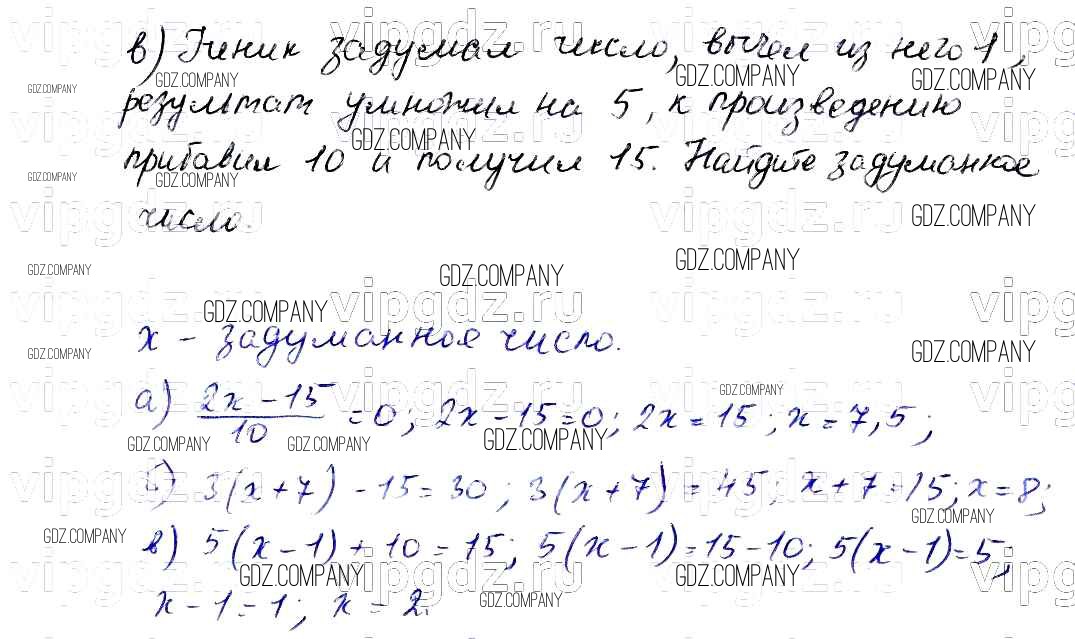 в) Ученик задумал число, вычел из него 1,
результат умножил на 5, к произведению
прибавил 10 и получил 15. Найдите задуманное
число.
x – задуманное число.
а) (2x – 15)/10 = 0; 2x – 15 = 0; 2x = 15; x = 7,5;
б) 3(x + 7) – 15 = 30; 3(x + 7) = 45; x + 7 = 15; x = 8;
в) 5(x – 1) + 10 = 15; 5(x – 1) = 15 – 10; 5(x – 1) = 5;
x – 1 = 1; x = 2.